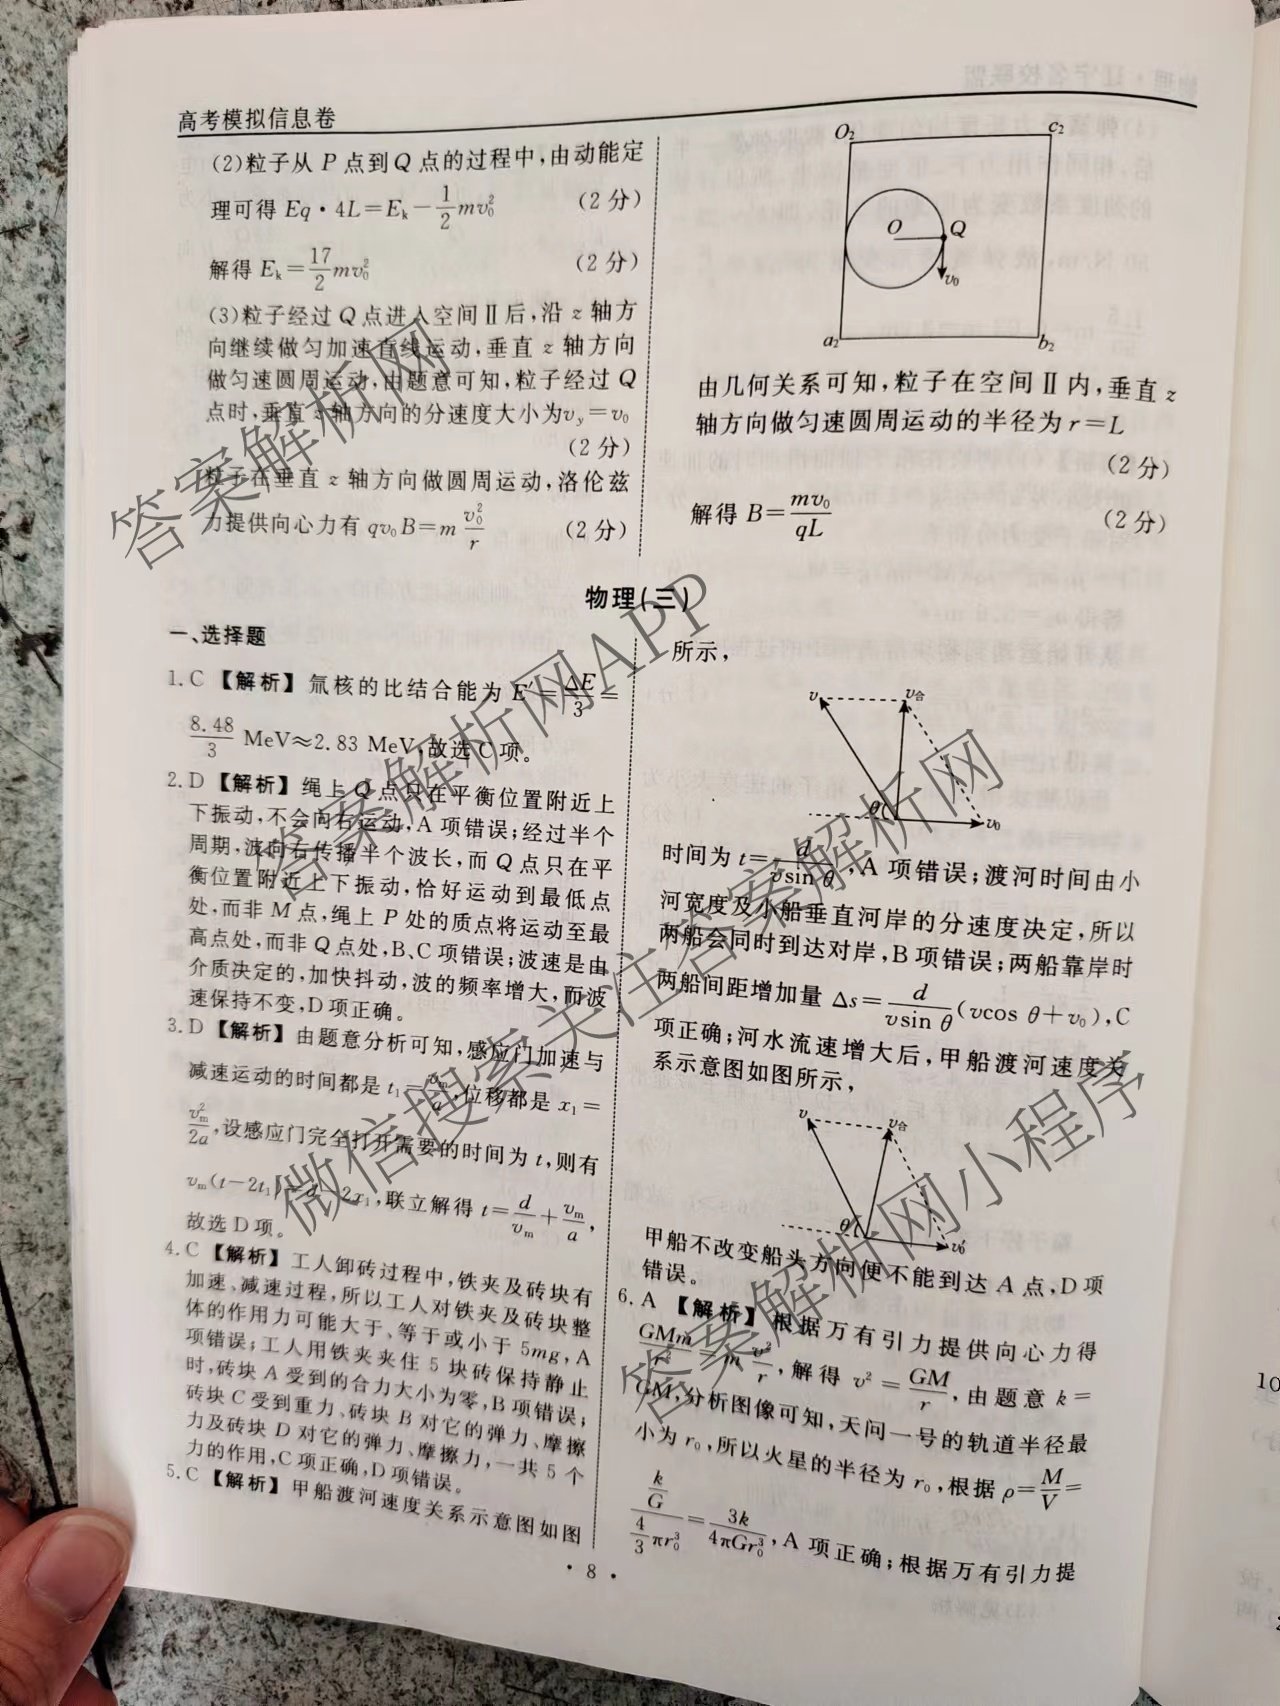 高考模拟信息卷
(2)粒子从 P 点到 Q 点的过程中,由动能定
理可得 Eq·4L=Eₖ-1/2mv₀² (2分)
解得 Eₖ=17/2mv₀² (2分)
(3)粒子经过 Q 点进入空间Ⅱ后,沿 z 轴方
向继续做匀加速直线运动,垂直 z 轴方向
做匀速圆周运动,由题意可知,粒子经过 Q
点时,垂直 z 轴方向的分速度大小为 v_y=v₀
(2分)
粒子在垂直 z 轴方向做圆周运动,洛伦兹
力提供向心力有 qv₀B=m v₀²/r (2分)
O₂ c₂
O Q
v₀
a₂ b₂
由几何关系可知,粒子在空间Ⅱ内,垂直 z
轴方向做匀速圆周运动的半径为 r=L
(2分)
解得 B=mv₀/qL (2分)
物理(三)
一、选择题
1.C 【解析】氚核的比结合能为 E'=ΔE/3=
8.48/3 MeV≈2.83 MeV,故选 C 项。
2.D 【解析】绳上 Q 点只在平衡位置附近上
下振动,不会向右运动,A 项错误;经过半个
周期,波向右传播半个波长,而 Q 点只在平
衡位置附近上下振动,恰好运动到最低点
处,而非 M 点,绳上 P 处的质点将运动至最
高点处,而非 Q 点处,B、C 项错误;波速是由
介质决定的,加快抖动,波的频率增大,而波
速保持不变,D 项正确。
3.D 【解析】由题意分析可知,感应门加速与
减速运动的时间都是 t₁=vₘ/a,位移都是 x₁=
vₘ²/2a,设感应门完全打开需要的时间为 t,则有
vₘ(t-2t₁)=d-2x₁,联立解得 t=d/vₘ+vₘ/a,
故选 D 项。
4.C 【解析】工人卸砖过程中,铁夹及砖块有
加速、减速过程,所以工人对铁夹及砖块整
体的作用力可能大于、等于或小于 5mg,A
项错误;工人用铁夹夹住 5 块砖保持静止
时,砖块 A 受到的合力大小为零,B 项错误;
砖块 C 受到重力、砖块 B 对它的弹力、摩擦
力及砖块 D 对它的弹力、摩擦力,一共 5 个
力的作用,C 项正确,D 项错误。
5.C 【解析】甲船渡河速度关系示意图如图
所示,
v v合
θ v₀
时间为 t=d/(vsin θ),A 项错误;渡河时间由小
河宽度及小船垂直河岸的分速度决定,所以
两船会同时到达对岸,B 项错误;两船靠岸时
两船间距增加量 Δs=d/(vsin θ)(vcos θ+v₀),C
项正确;河水流速增大后,甲船渡河速度关
系示意图如图所示,
v v合
θ v₀'
甲船不改变船头方向便不能到达 A 点,D 项
错误。
6.A 【解析】根据万有引力提供向心力得
GMm/r²=m v²/r,解得 v²=GM/r,由题意 k=
GM,分析图像可知,天问一号的轨道半径最
小为 r₀,所以火星的半径为 r₀,根据 ρ=M/V=
(k/G)/(4/3 πr₀³)=3k/4πGr₀³,A 项正确;根据万有引力提
·8·
10
答案解析网
答案解析网APP
微信搜索关注答案解析网
答案解析网小程序